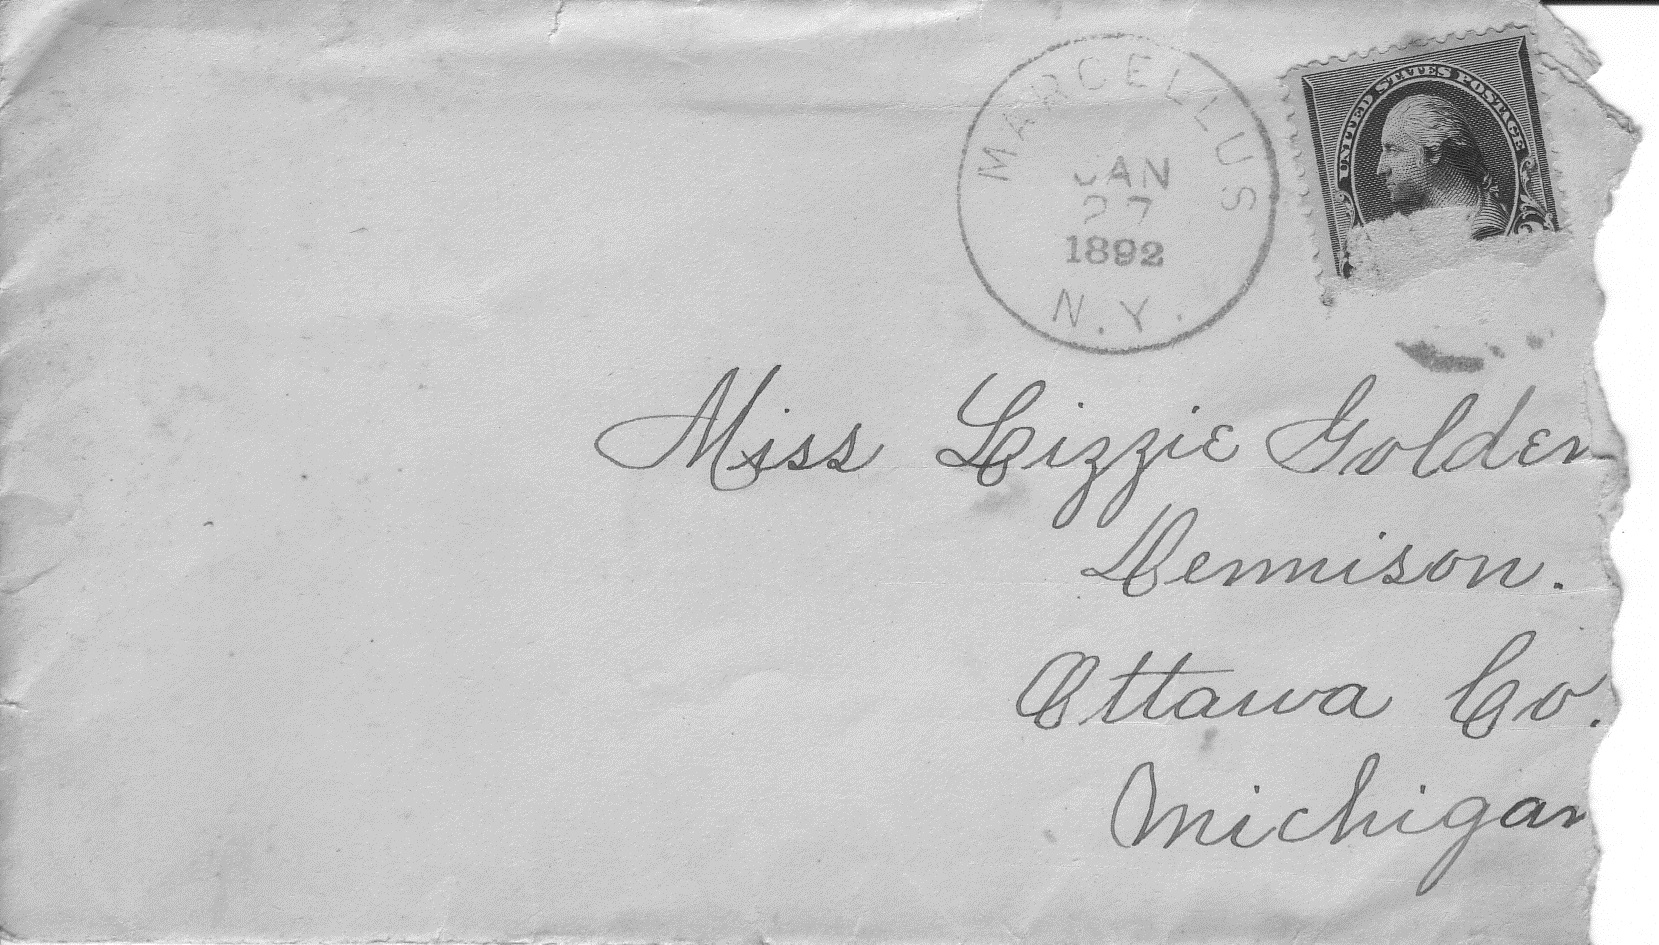 MARCELLUS
JAN
27
1892
N.Y.
UNITED STATES POSTAGE
Miss Lizzie Golden
Dennison.
Ottawa Co.
Michigan